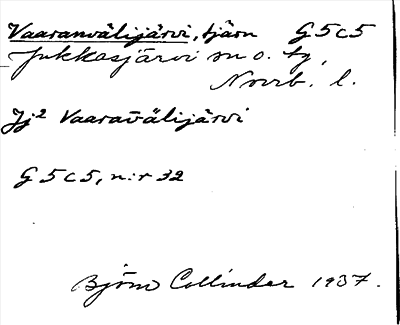 Vaaranvälijärvi, tjärn G5c5
Jukkasjärvi sn o. tg,
Norrb. l.
Jj² Vaaravälijärvi
G5c5, n:r 32
Björn Collinder 1937.